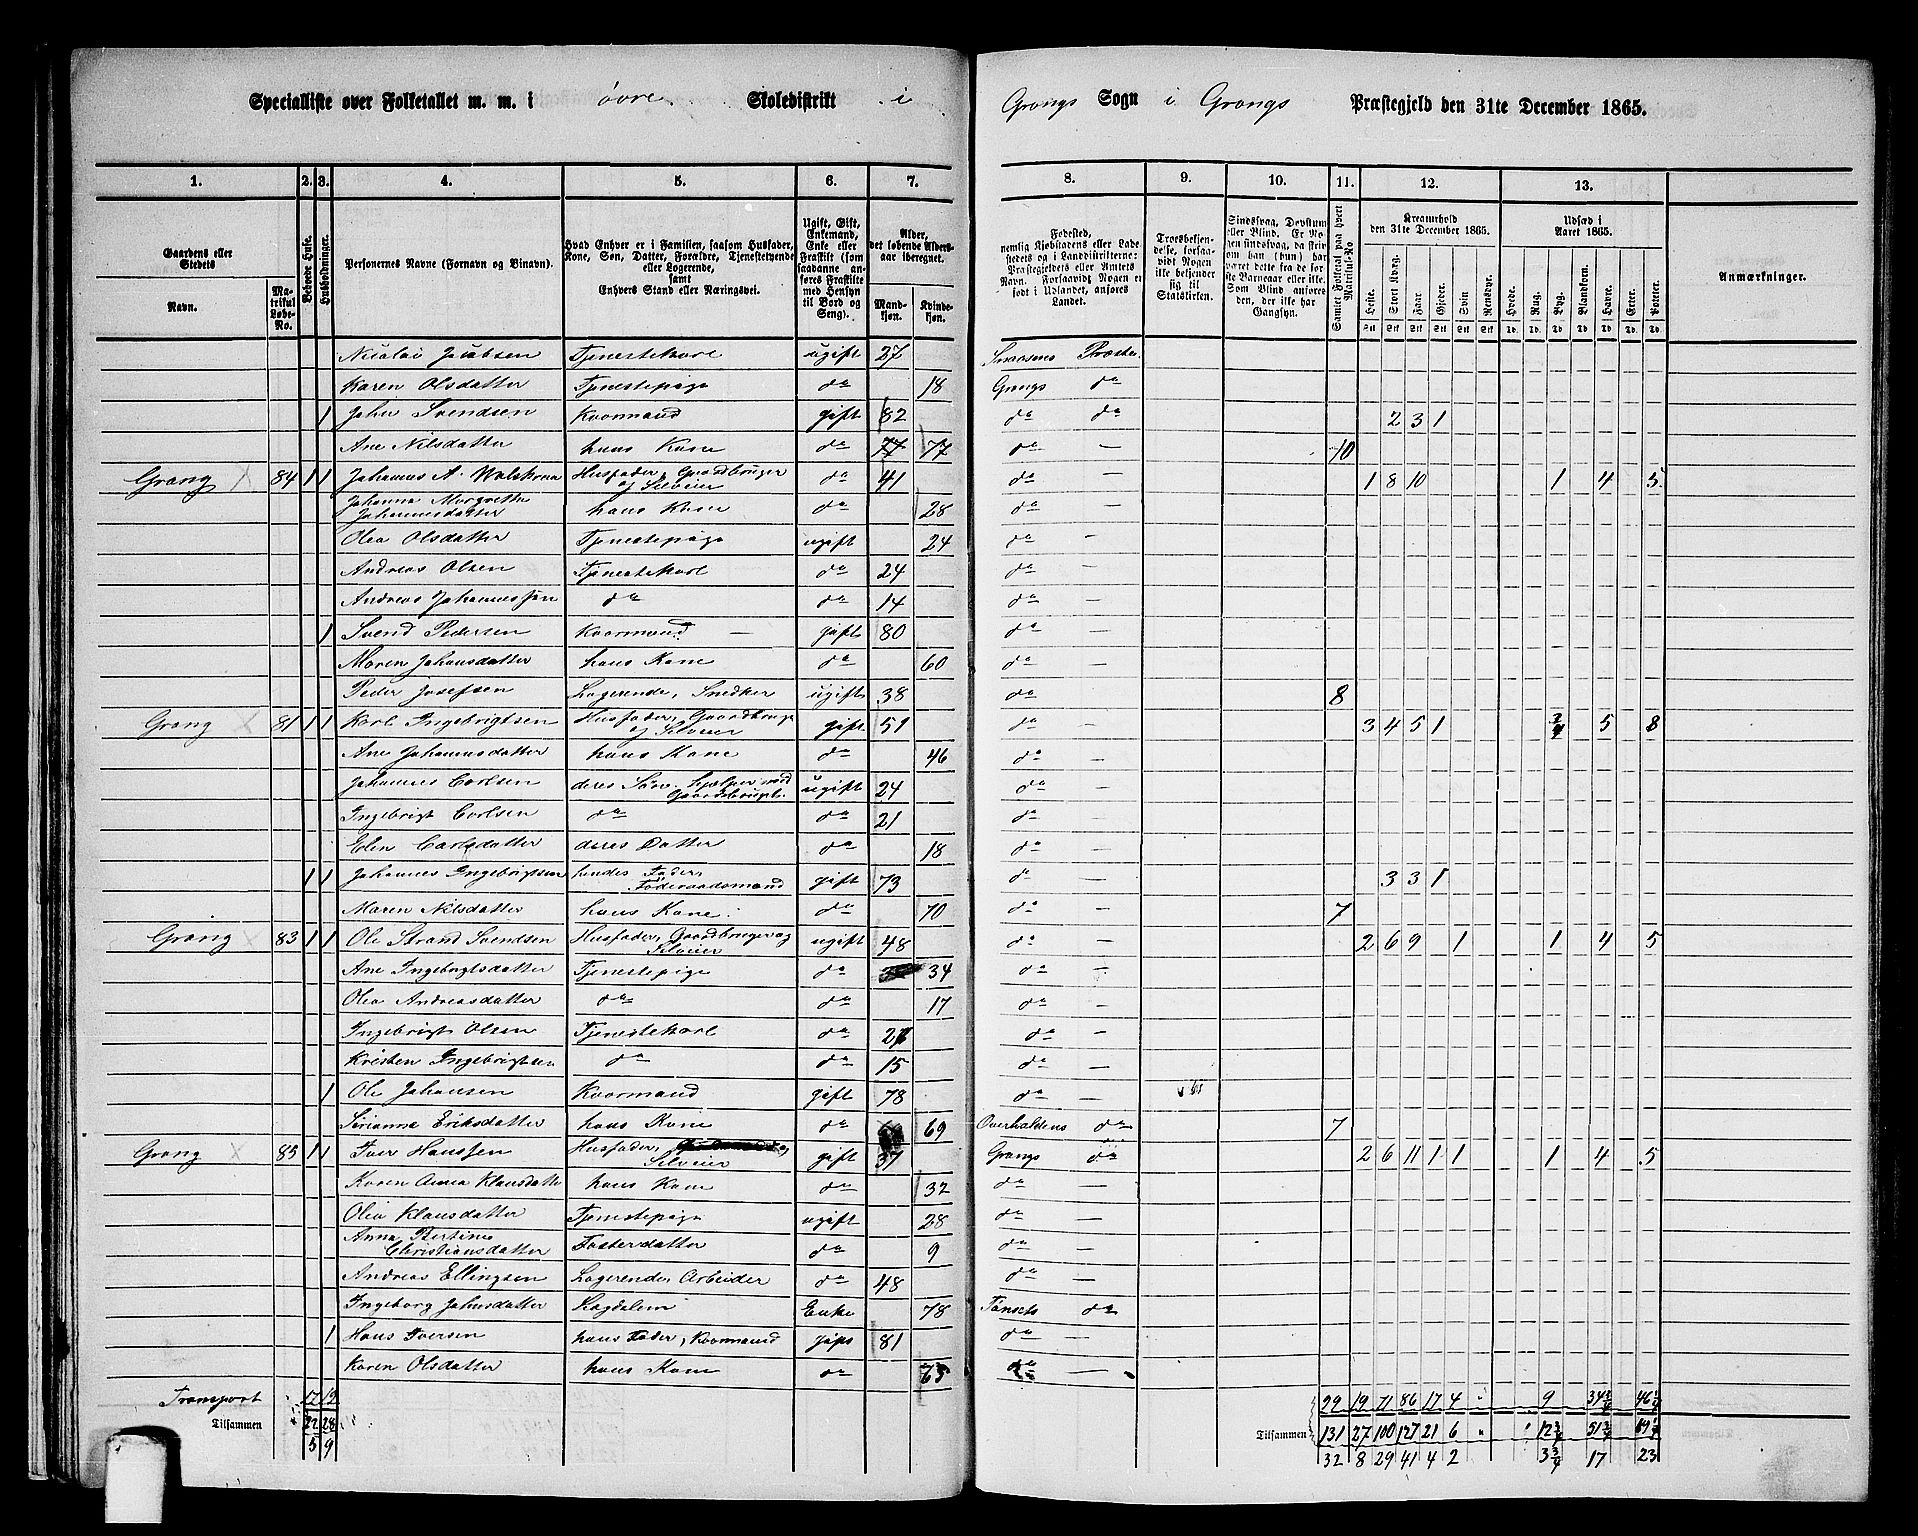 Specialliste over Folketallet m. m. i øvre Skoledistrikt i
Grongs Sogn i Grongs Præstegjeld den 31te December 1865.
1. 2. 3. 4. 5. 6. 7. 8. 9. 10. 11. 12. 13.
Gaardens eller Stedets
Navn.
Matrikul Løbe-No.
Beboede Huse.
Husholdninger.
Personernes Navne (Fornavn og Binavn).
Hvad Enhver er i Familien, saasom Husfader, Kone, Søn, Datter, Forældre, Tjenestetyende eller Logerende, samt Enhvers Stand eller Næringsvei.
Ugift, Gift, Enkemand, Enke eller Fraskilt (som saadanne anføres Fraskilte med Hensyn til Bord og Seng).
Alder, det løbende Alders-aar iberegnet.
Mand-kjøn. Kvinde-kjøn.
Fødested, nemlig Kjøbstadens eller Ladestedets og i Landdistrikterne: Præstegjeldets eller Amtets Navn. Forsaavidt Nogen er født i Udlandet, anføres Landet.
Troesbekjendelse, forsaavidt Nogen ikke bekjender sig til Statskirken.
Sindssvag, Døvstum eller Blind. Er Nogen sindssvag, da skrives om han (hun) har været dette fra de første Barneaar eller ikke. Som Blind anføres den, der ikke har Gangsyn.
Samlet Folketal paa hvert Matrikul-No
Kreaturhold den 31te December 1865.
Heste. Stort Kvæg. Faar. Gjeder. Svin. Rensdyr.
Udsæd i Aaret 1865.
Hvede. Rug. Byg. Blandkorn. Havre. Erter. Poteter.
Anmærkninger.
Stk Stk Stk Stk Stk Stk Td. Td. Td. Td. Td. Td. Td.
Nicolai Jacobsen Tjenestekarl ugift 27 Snaasens Præstes.
Karen Olsdatter Tjenestepige do 18 Grongs do
1 John Svendsen Kaarmand gift 82 do do 2 3 1
Ane Nilsdatter hans Kone do 77 do — 10
Grong 84 1 1 Johannes A. Husfader, Gaardbruger og Selveier do 41 do — 1 8 10 1 4 5
Johanna Margrette Johannesdatter hans Kone do 28 do —
Olea Olsdatter Tjenestepige ugift 24 do —
Andreas Olsen Tjenestekarl do 24 do —
Andreas Johannessen do do 14 do —
1 Svend Pedersen Kaarmand — gift 80 do —
Maren Johansdatter hans Kone do 60 do —
Peder Josefsen Logerende, Snedker ugift 38 do — 8
Grong 81 1 1 Karl Ingebrigtsen Husfader, Gaardbruger og Selveier gift 51 do — 3 4 5 1 5 8
Ane Johannesdatter hans Kone do 46 do —
Johannes Carlsen deres Søn, hjælper med Gaardsbruget. ugift 24 do —
Ingebrigt Carlsen do do 21 do —
Elen Carlsdatter deres Datter do 18 do —
1 1 Johannes Ingebrigtsen hendes Fader, Føderaadsmand gift 73 do — 3 3 1
Maren Nilsdatter hans Kone do 70 do — 7
Grong 83 1 1 Ole Strand Svendsen Husfader, Gaardbruger og Selveier ugift 48 do — 2 6 9 1 1 4 5
Ane Ingebrigtsdatter Tjenestepige do 34 do —
Olea Andreasdatter do do 17 do —
Ingebrigt Olsen Tjenestekarl do do —
Kristen Ingebrigtsen do do 15 do —
1 Ole Johansen Kaarmand gift 78 do —
Serianna Eriksdatter hans Kone do 69 Overhaldens do 7
Grong 85 1 1 Iver Hanssen Husfader, Selveier gift 37 Grongs do 2 6 11 1 1 1 4 5
Karen Anna Klausdatter hans Kone do 32 do —
Olea Klausdatter Tjenestepige ugift 28 do —
Anna Bertine Christiansdatter Fosterdatter do 9 do —
Andreas Ellingsen Logerende, Arbeider do 48 do —
Ingeborg Johnsdatter Lægdslem Enke 78 Tønsets do
1 Hans Iversen hans Fader, Kaarmand gift 81 do —
Karen Olsdatter hans Kone do 75 do —
Transport 17 19 99 19 71 86 17 4 9 34¾ 46½
Tilsammen 22 28 Tilsammen 131 27 100 127 21 6 12¾ 51¾ 69½
5 9 32 8 29 41 4 2 3¾ 17 23